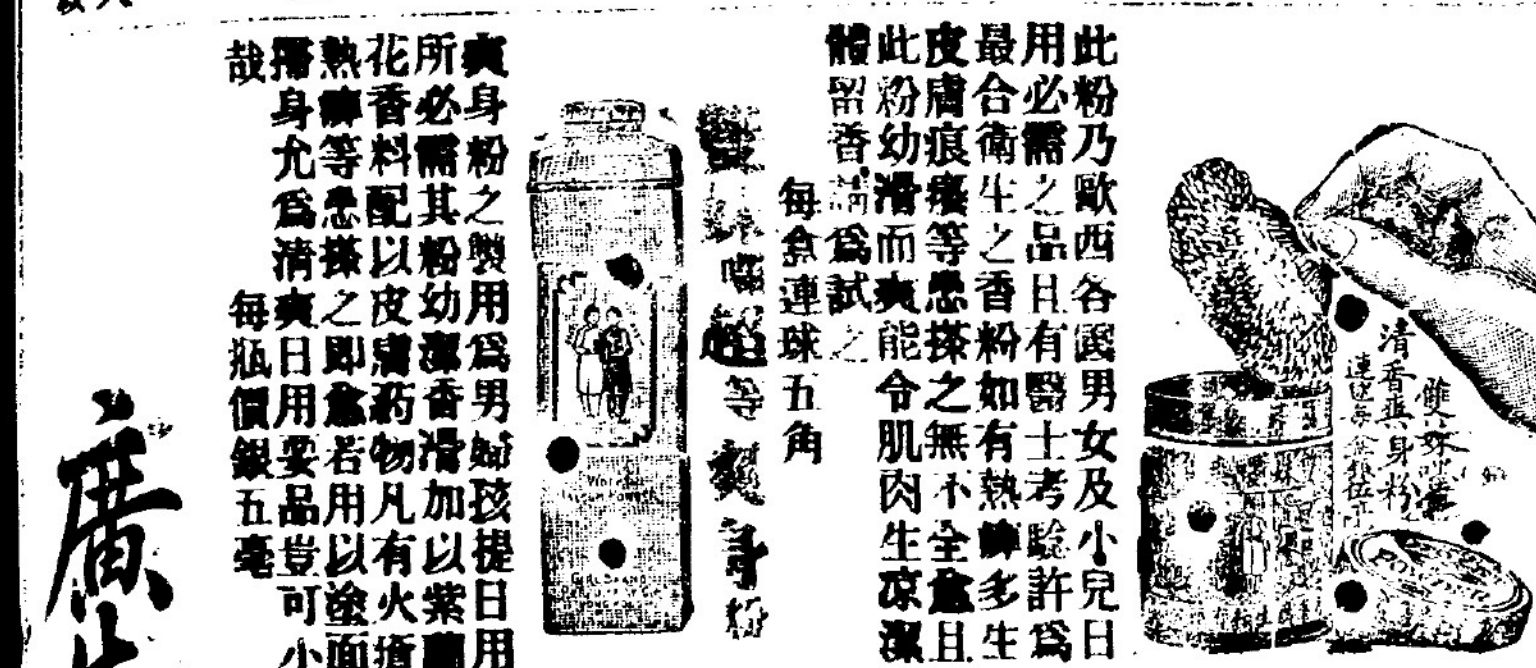 清香爽身粉
此粉乃歐西各國男女及小兒日
用必需之品且有醫士考驗許爲
最合衛生之香粉如有熱痱多生
皮膚痕癢等患搽之無不全愈且
此粉幼滑而爽能令肌肉生凉潔
體留香請爲試之
每盒連球五角
嚜超等爽身粉
GIRL BRAND
爽身粉之製用爲男婦孩提日用
所必需其粉幼潔香滑加以紫蘭
花香料配以皮膚药物凡有火瘡
熱痱等患搽之即愈若用以塗面
身允爲清爽日用要品豈可小
哉
每瓶價銀五毫
廣